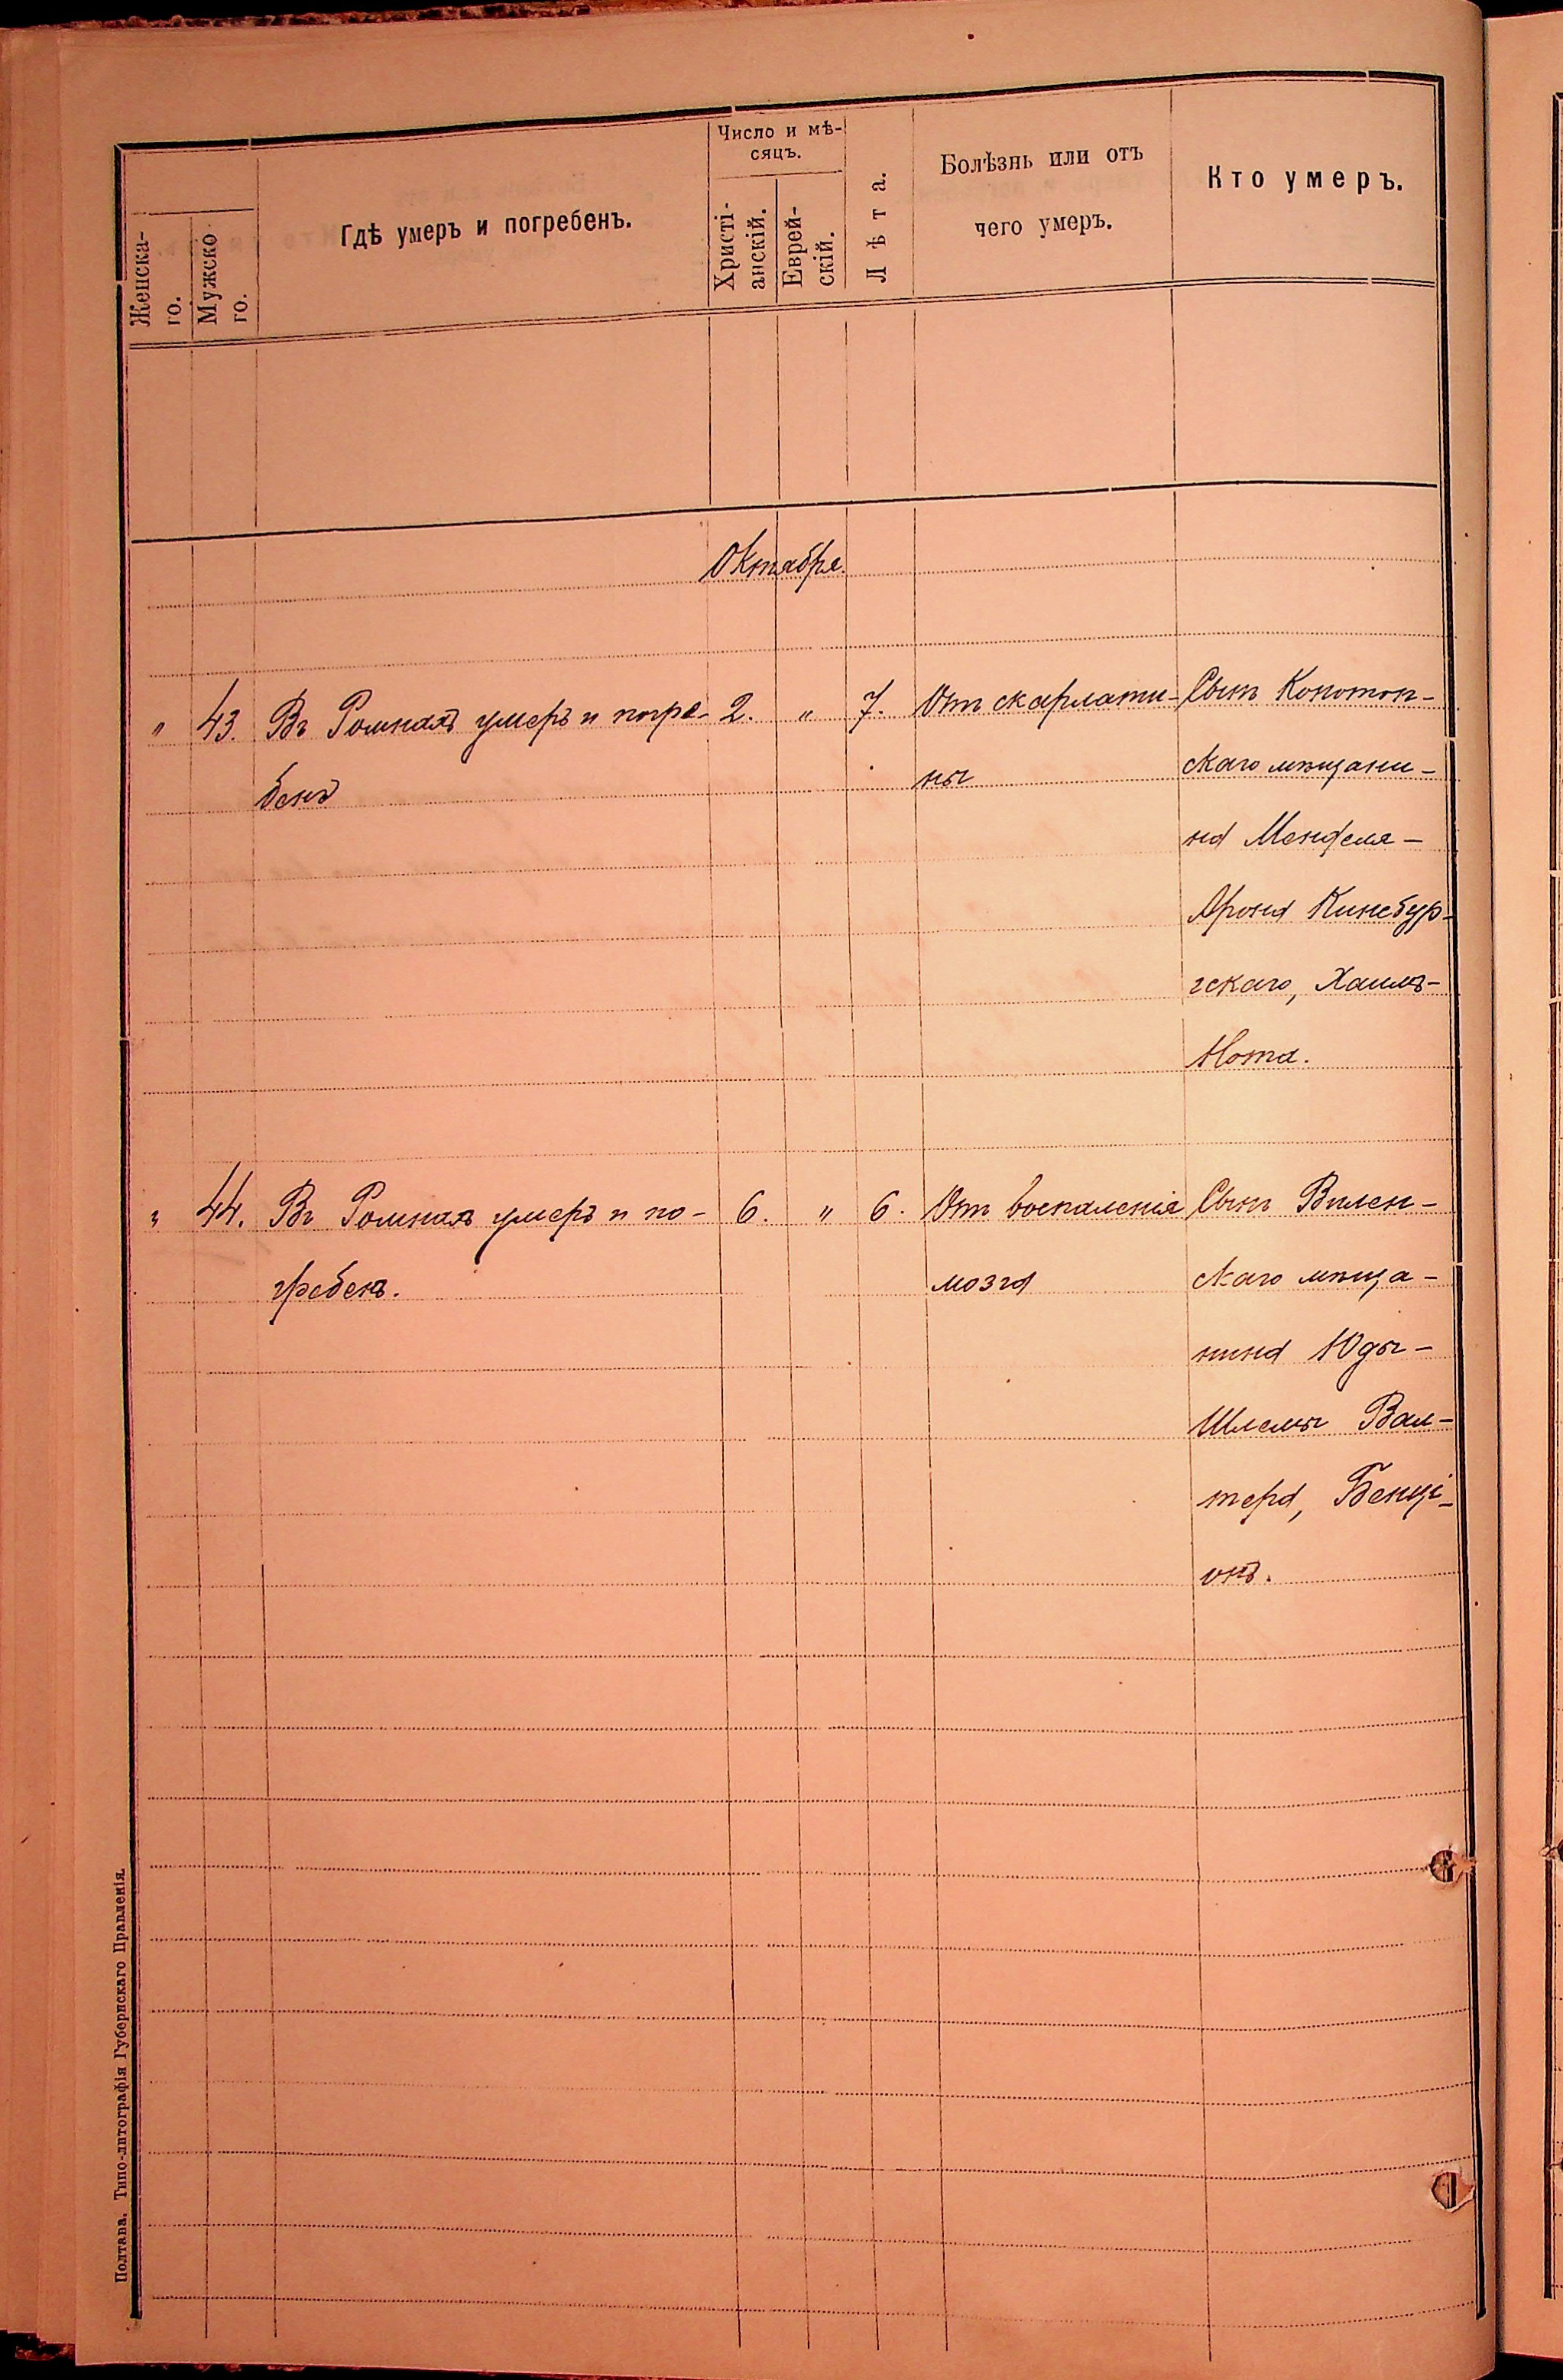 Женска-
го.
Мужско
го.
Гдѣ умеръ и погребенъ.
Число и мѣ-
сяцъ.
Христі-
анскій.
Еврей-
скій.
Лѣта.
Болѣзнь или отъ
чего умеръ.
Кто умеръ.
Октября.
" 43. Въ Ромнахъ умеръ и погре- 2. " 7. Отъ скарлати- Сынъ Конотоп-
бенъ ны скаго мѣщани-
на Менделя-
Арона Кинебур-
гскаго, Хаимъ-
Нота.
" 44. Въ Ромнахъ умеръ и по- 6. " 6. Отъ воспаленія Сынъ Вилен-
гребенъ. мозга скаго мѣща-
нина Юды-
Шлемы Вал-
тера, Бенці-
онъ.
Полтава. Типо-литографія Губернскаго Правленія.